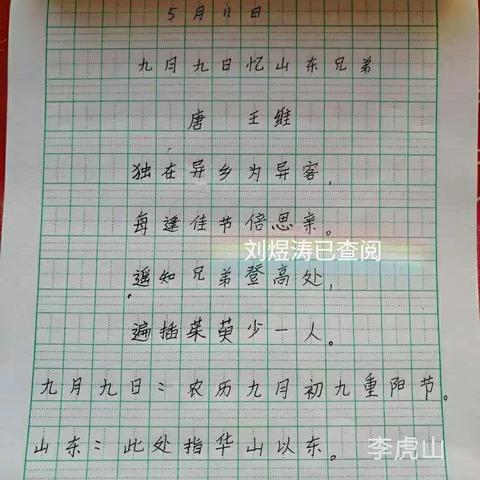 5月11日
九月九日忆山东兄弟
唐 王维
独在异乡为异客,
每逢佳节倍思亲。
刘煜涛已查阅
遥知兄弟登高处,
遍插茱萸少一人。
九月九日：农历九月初九重阳节。
山东：此处指华山以东。
李虎山